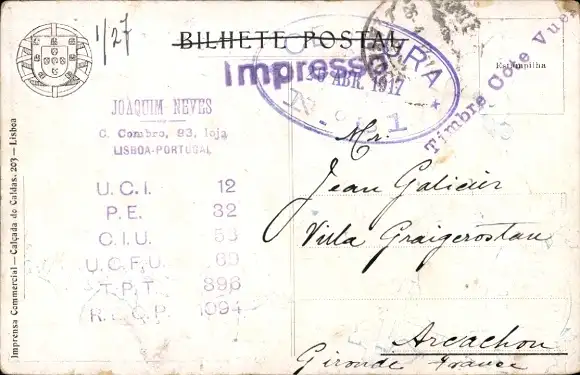 1/27
BILHETE POSTAL
Impresso
CENSURA
20 ABR. 1917
N.º 1
Estampilha
Timbre Côté Vue
JOAQUIM NEVES
C. Combro, 93, loja
LISBOA-PORTUGAL
U.C.I. 12
P.E. 32
C.I.U.
U.C.F.U.
T.P.T. 896
1094
Mr.
Jean Galicier
Villa Graigcrostan
Arcachon
Gironde France
Imprensa Commercial — Calçada do Caldas, 203 — Lisboa